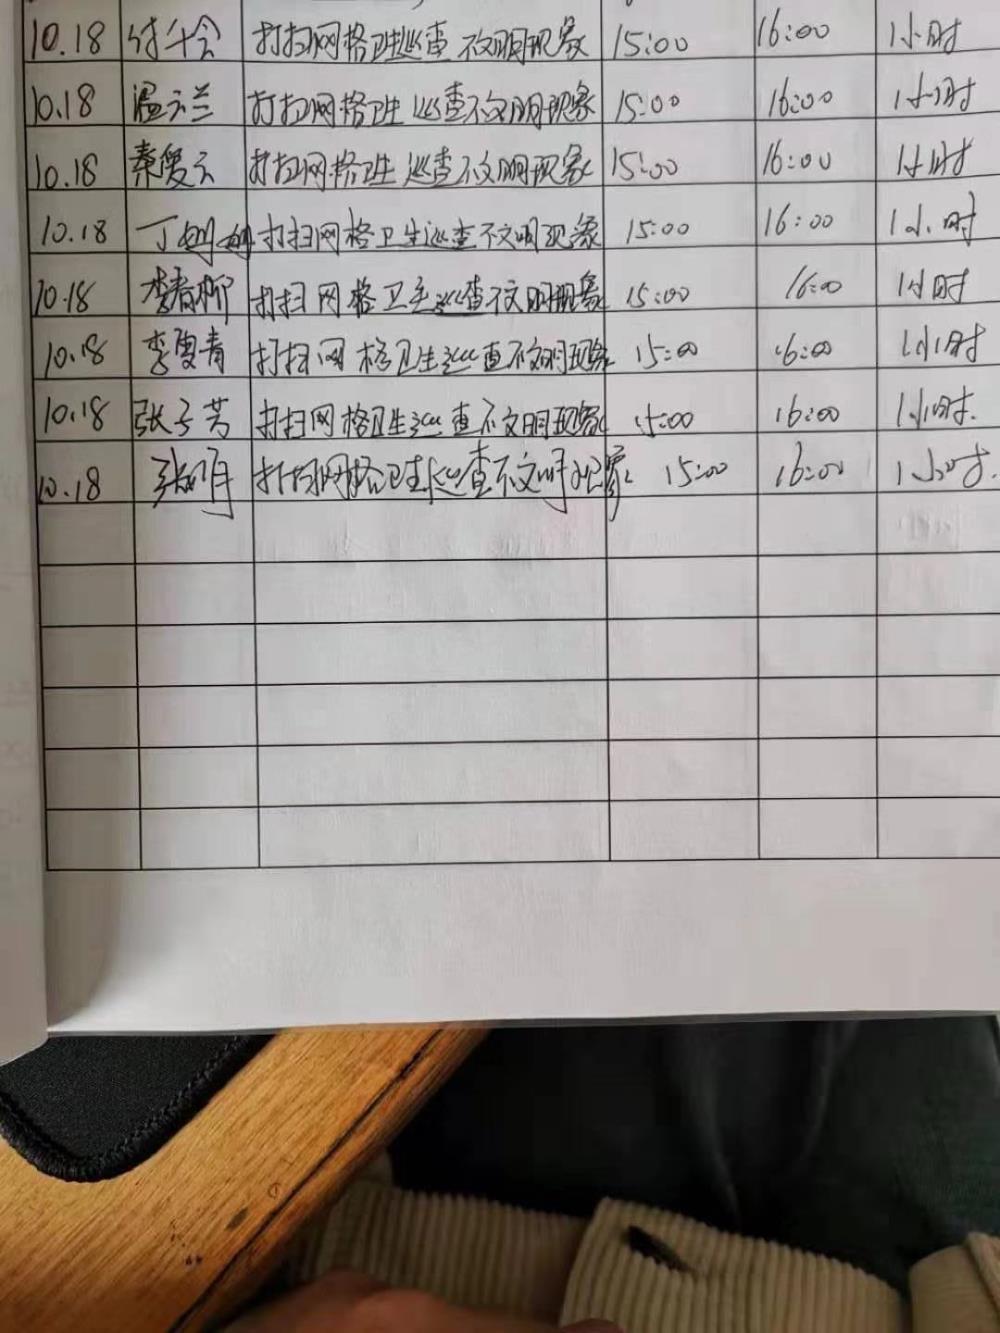 10.18 付斗会 打扫网格卫生巡查不文明现象 15:00 16:00 1小时
10.18 温云兰 打扫网格卫生巡查不文明现象 15:00 16:00 1小时
10.18 秦复云 打扫网格卫生巡查不文明现象 15:00 16:00 1小时
10.18 丁 打扫网格卫生巡查不文明现象 15:00 16:00 1小时
10.18 李春柳 打扫网格卫生巡查不文明现象 15:00 16:00 1小时
10.18 李夏青 打扫网格卫生巡查不文明现象 15:00 16:00 1小时
10.18 张子芳 打扫网格卫生巡查不文明现象 15:00 16:00 1小时.
10.18 张 打扫网格卫生巡查不文明现象 15:00 16:00 1小时.